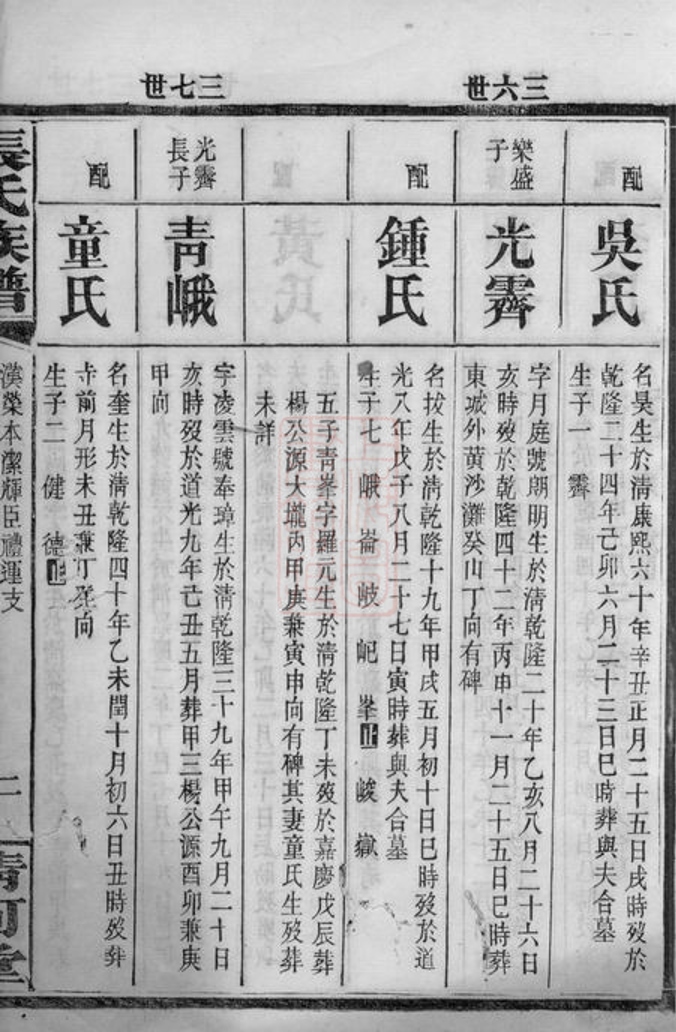 三六世
配
吳氏
名昊生於清康熙六十年辛丑正月二十五日戌時歿於
乾隆二十四年己卯六月二十三日巳時葬與夫合墓
生子一 霽
樂盛
子
光霽
字月庭號朗明生於清乾隆二十年乙亥八月二十六日
亥時歿於乾隆四十二年丙申十一月二十五日巳時葬
東城外黃沙灘癸山丁向有碑
配
鍾氏
名拔生於清乾隆十九年甲戌五月初十日巳時歿於道
光八年戊子八月二十七日寅時葬與夫合墓
生子七 峨 崙 岐 屺 峯止 峻 嶽
五子青峯字羅元生於清乾隆丁未歿於嘉慶戊辰葬
楊公源大壠丙甲庚兼寅申向有碑其妻童氏生歿葬
未詳
三七世
光霽
長子
青峨
字凌雲號奉璋生於清乾隆三十九年甲午九月二十日
亥時歿於道光九年己丑五月葬甲三楊公源酉卯兼庚
甲向
配
童氏
名奎生於清乾隆四十年乙未閏十月初六日丑時歿葬
寺前月形未丑兼丁癸向
生子二 健 德止
張氏族譜
漢榮本潔輝臣禮運支
二
清河堂